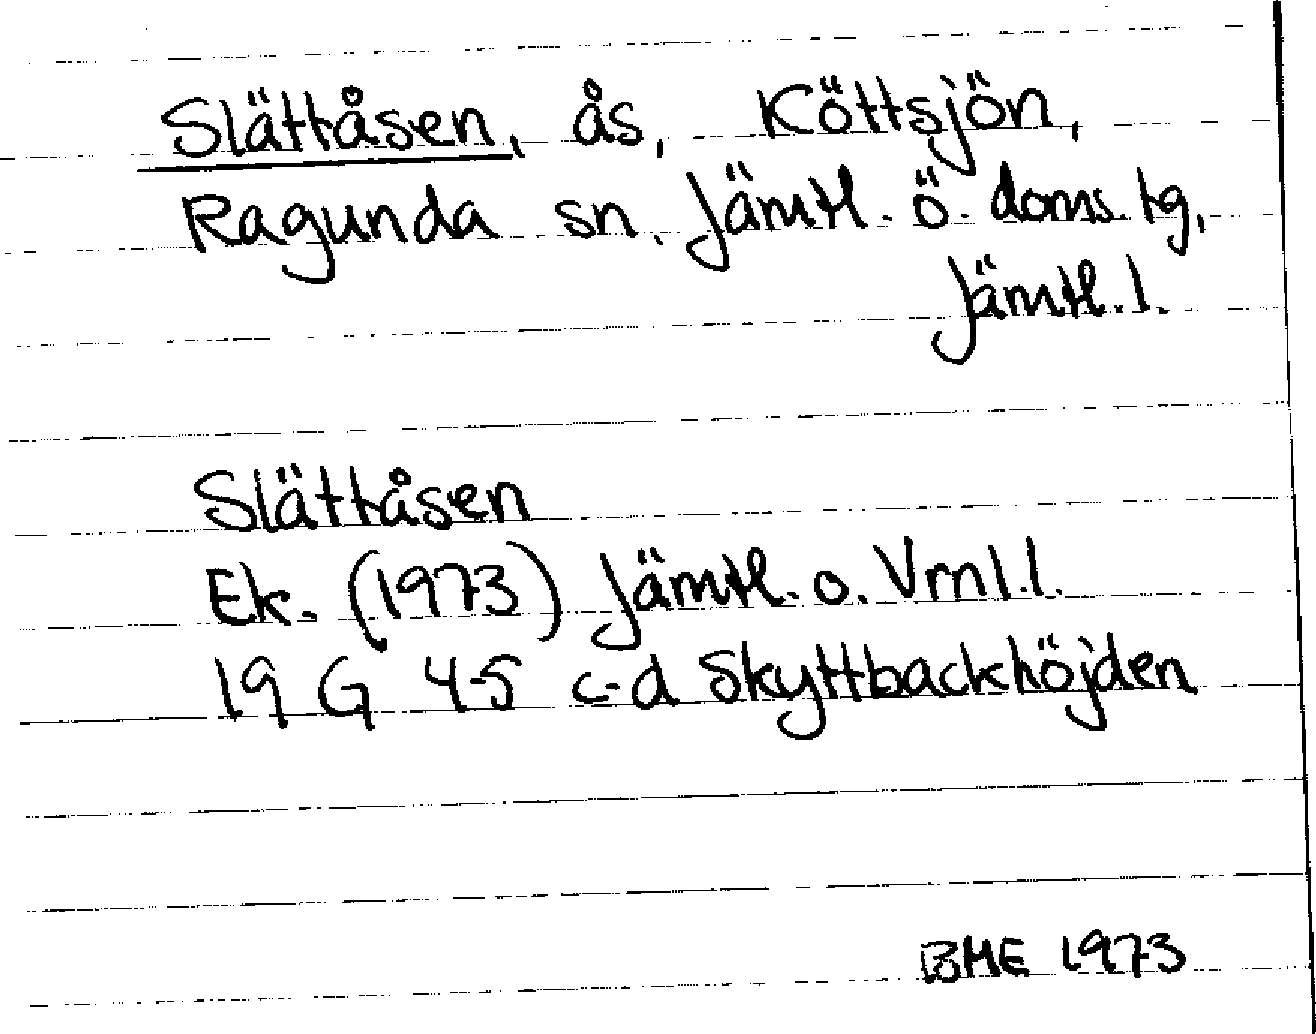 Slättåsen, ås, Köttsjön,
Ragunda sn, Jämtl. ö. doms. tg,
Jämtl. l.
Slättåsen
Ek. (1973) Jämtl. o. Vrnl. l.
19 G 4-5 c-d Skyttbackhöjden
BME 1973